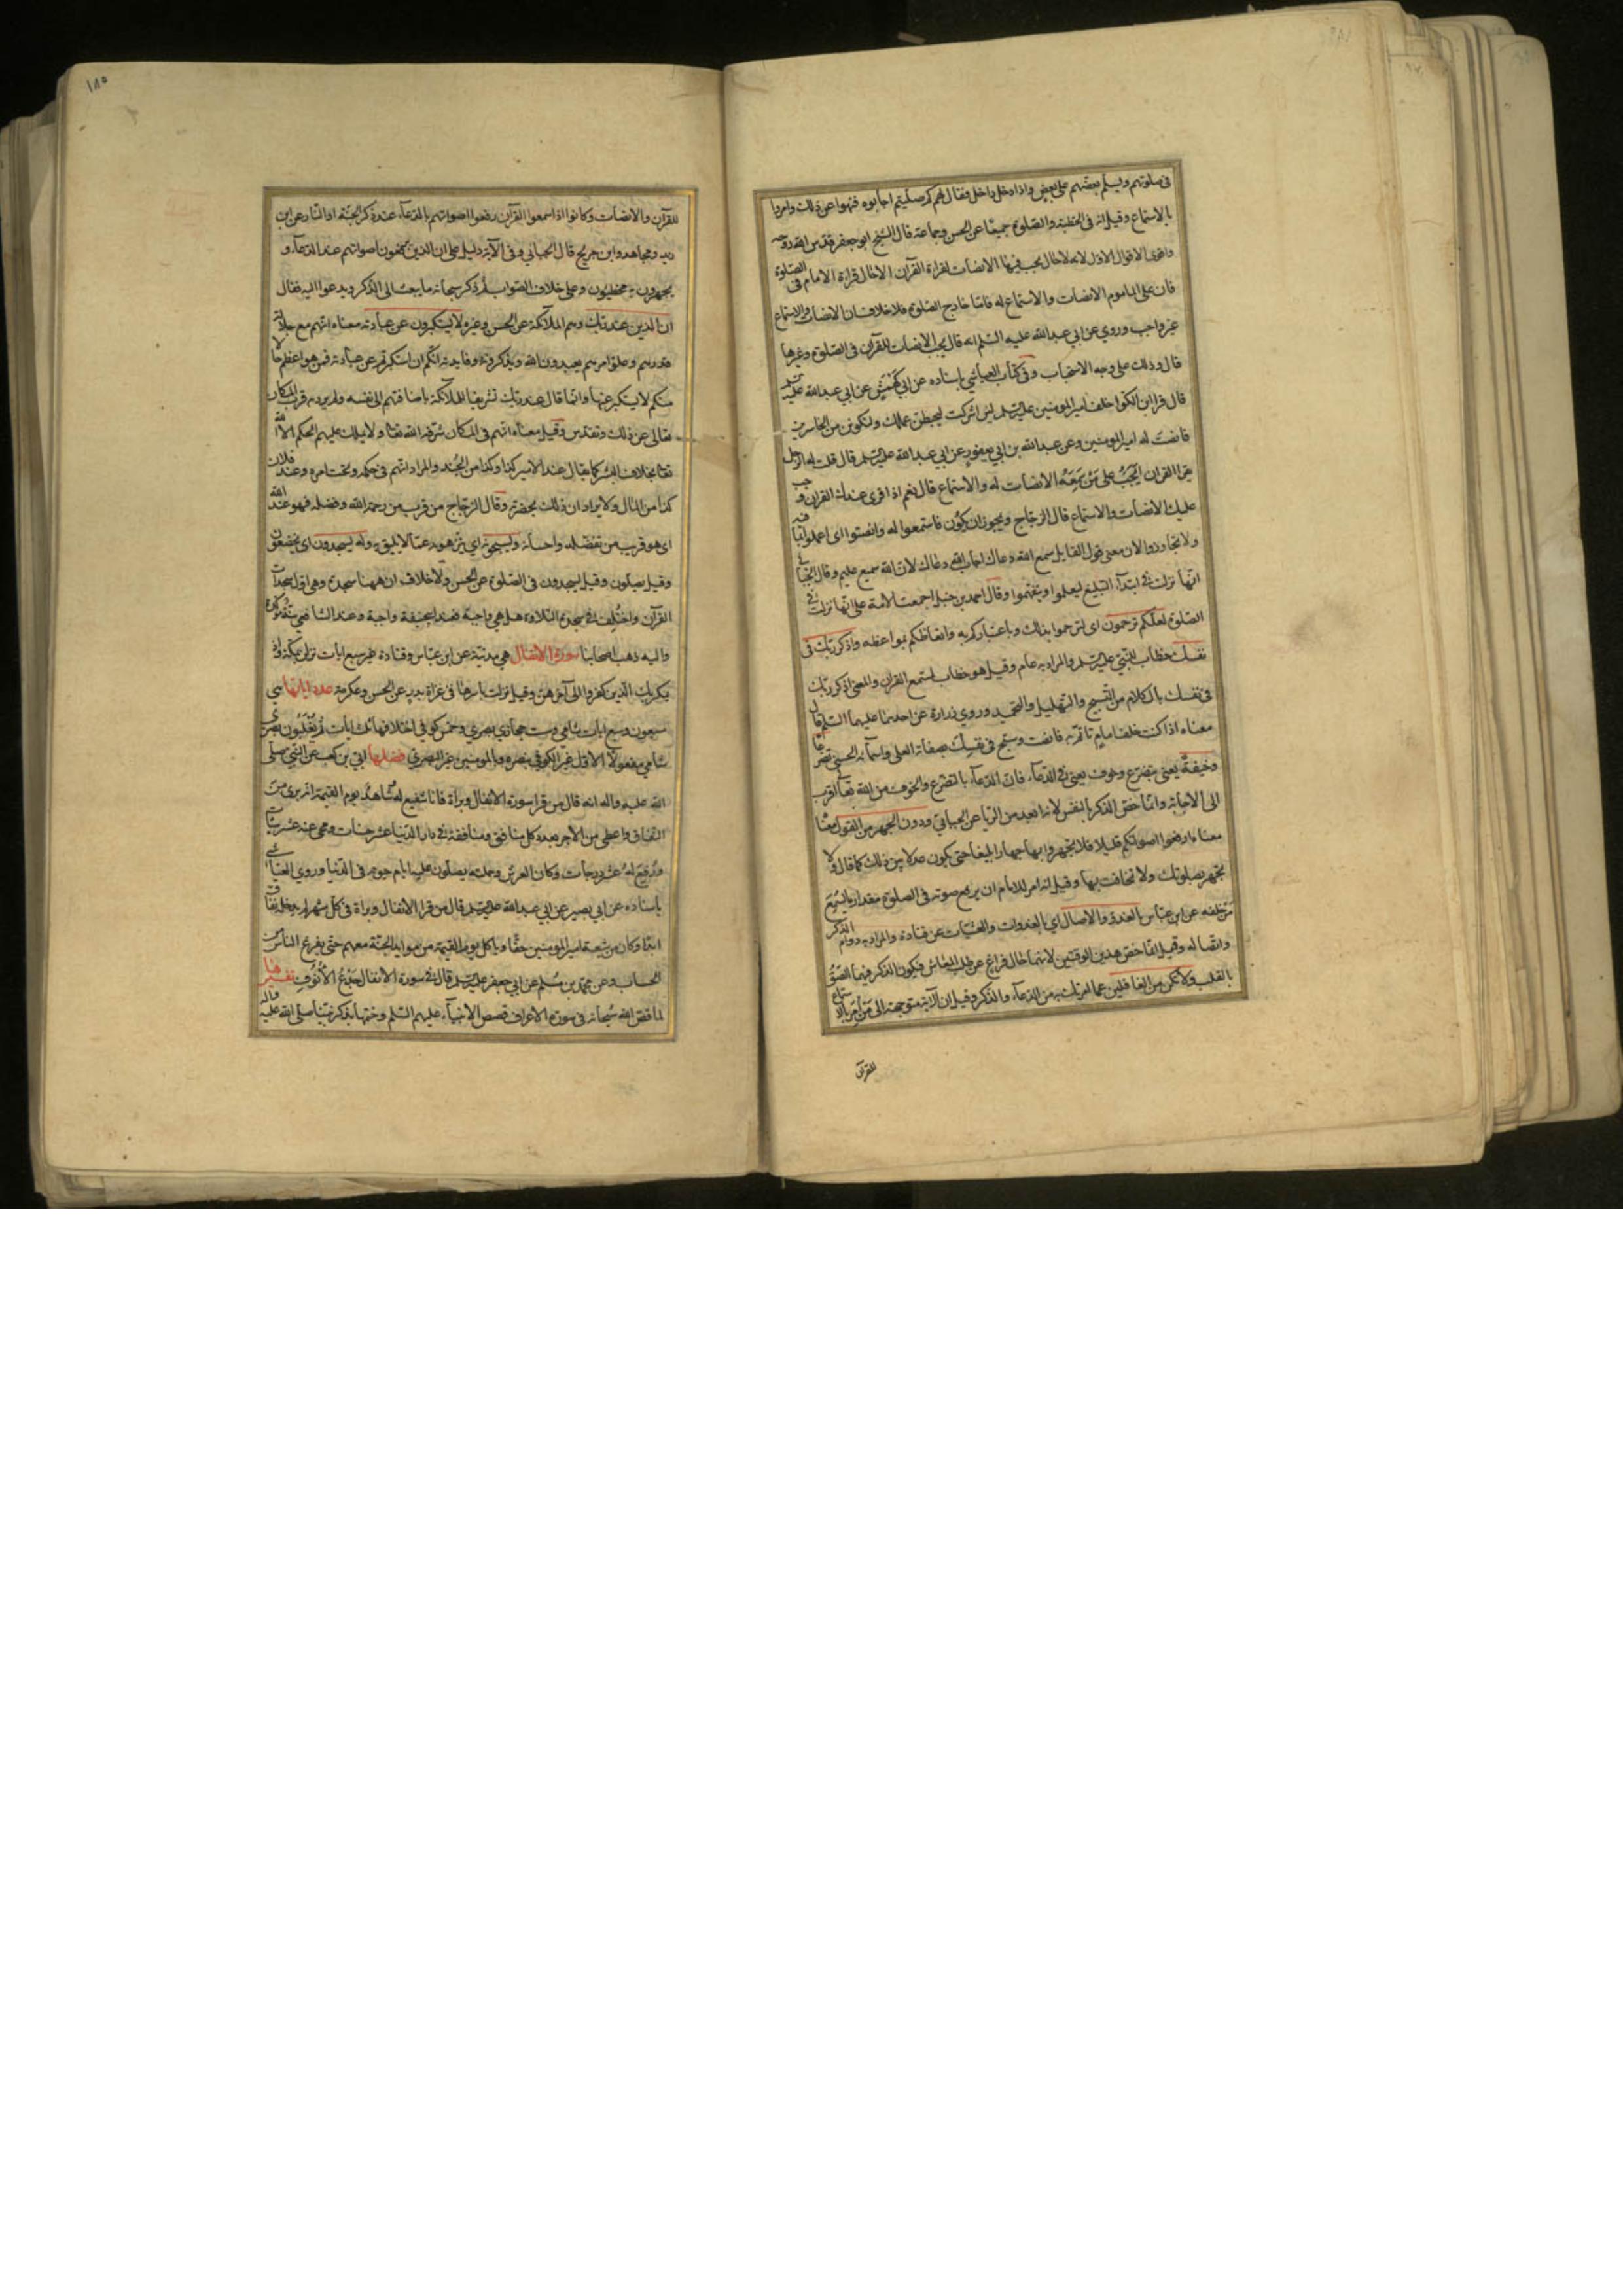 فى صلوتهم ويسلم بعضهم على بعض واذا دخل داخل فقال لهم كم صليتم اجابوه فنهوا عن ذلك وامروا
بالاستماع وقيل انه فى الخطبة والصلوة جميعًا عن الحسن وجماعة قال الشيخ ابو جعفر قدس الله روحه
واقوى الاقوال الاول لانه لا حال يجب فيها الانصات لقراءة القرآن الا حال قراءة الامام فى الصلوة
فان على الماموم الانصات والاستماع له فامّا خارج الصلوة فلا خلاف ان الانصات والاستماع
غير واجب وروي عن ابي عبد الله عليه السلم انه قال يجب الانصات للقرآن فى الصلوة وغيرها
قال وذلك على وجه الاستحباب وفى كتاب العياشي باسناده عن ابي كَهْمَشٍ عن ابي عبد الله عليه السلم
قال قرا ابن الكوا خلف امير المومنين عليه السلم لئن اشركت ليحبطن عملك ولتكونن من الخاسرين
فانصت له امير المومنين وعن عبد الله بن ابي يعفور عن ابي عبد الله عليه السلم قال قلت له الرجل
يقرا القران ايَجِبُ على مَنْ سَمِعَهُ الانصات له والاستماع قال نعم اذا قرى عندك القران وجب
عليك الانصات والاستماع قال الزجاج ويجوز ان يكون فاستمعوا له وانصتوا اى اعملوا بما فيه
ولا تجاوزوا لان معنى قول القايل سمع الله دعاك اجاب الله دعاك لان الله سميع عليم وقال الجبائي
انها نزلت فى ابتداء التبليغ ليعلموا ويتفهموا وقال احمد بن حنبل اجمعت الامة على انها نزلت فى
الصلوة لعلكم ترحمون اى لترحموا بذلك وباعتباركم به واتعاظكم بمواعظه واذكر ربك فى
نفسك خطاب للنبي عليه السلم والمراد به عام وقيل هو خطاب لمستمع القران والمعنى اذكر ربك
فى نفسك بالكلام من التسبيح والتهليل والتحميد وروي زرارة عن احدهما عليهما السلم قال
معناه اذا كنت خلف امامٍ تاتمّ به فانصت وسبح فى نفسِكَ بصفاته العلى واسمآئه الحسنى تضرعًا
وخيفةً يعني بتضرع وخوف يعني فى الدعآء فان الدعآء بالتضرع والخوف من الله تعالى اقرب
الى الاجابة وانما خص الذكر بالنفس لانه ابعد من الريا عن الجبائي ودون الجهر من القول معنا
معناه ارفعوا اصواتكم قليلا فلا تجهروا بها جهارا بليغا حتى يكون عدلا بين ذلك كما قال ولا
تجهر بصلوتك ولا تخافت بها وقيل انه امر للامام ان يرفع صوته فى الصلوة مقدار ما يَسْمَعُ
مَنْ خلفه عن ابن عباس بالغدو والاصال اي بالغدوات والعشيات عن قتادة والمراد به دوام الذكر
واتصاله وقيل انما خص هذين الوقتين لانهما حال فراغ عن طلب المعاش فيكون الذكر فيهما الصق
بالقلب ولا تكن من الغافلين عما امرتك به من الدعآء والذكر وقيل ان الآية متوجهة الى مَنْ اُمِرَ بالاستماع
للقرآن
١٨٥
للقرآن والانصات وكانوا اذا سمعوا القرآن رفعوا اصواتهم بالدعآء عند ذكر الجنة او النار عن ابن
زيد ومجاهد وابن جريج قال الجبائي وفى الآية دليل على ان الذين يرفعون اصواتهم عند الدعآء و
يجهرون به مخطئون وعلى خلاف الصواب ثم ذكر سبحانه ما يبعث الى الذكر ويدعوا اليه فقال
ان الذين عند ربك وهم الملائكة عن الحسن وغيره لا يستكبرون عن عبادته معناه انهم مع جلالة
قدرهم وعلو امرهم يعبدون الله ويذكرونه وفايدته انكم ان استكبرتم عن عبادته فمن هو اعظم حالا
منكم لا يستكبر عنها وانما قال عند ربك تشريفا للملائكة باضافتهم الى نفسه ولم يرد به قرب المكان
تعالى عن ذلك وتقدس وقيل معناه انهم فى المكان شرفه الله تعالى ولا يملك عليهم الحكم الا الله
تعالى بخلاف البشر كما يقال عند الامير كذا وكذا من الجُند والمراد انهم فى حكمه وتحت امره وعند فلان
كذا من المال ولا يراد ان ذلك بحضرته وقال الزجاج من قرب من رحمة الله وفضله فهو عند الله
اى هو قريب من تفضله واحسانه ويسبحونه اي ينزهونه عما لا يليق به وله يسجدون اى يخضعون
وقيل يصلون وقيل يسجدون فى الصلوة عن الحسن ولا خلاف ان ههنا سجدة وهي اول سجدات
القرآن واختُلِف فى سجدة التلاوة هل هي واجبة فعند ابي حنيفة واجبة وعند الشافعي سنة موكدة
واليه ذهب اصحابنا سورة الانفال هي مدنية عن ابن عباس وقتادة غير سبع ايات نزلن بمكة واذ
يمكر بك الذين كفروا الى آخرهن وقيل نزلت باسرها فى غزاة بدر عن الحسن وعكرمة عدد اياتها هي
سبعون وسبع ايات شامي وست حجازي بصري وخمس كوفي اختلافها ثلث ايات ثم يُغْلَبُون بصري
شامي مفعولا الاول غير الكوفي بنصره وبالمومنين غير البصري فضلها ابي بن كعب عن النبي صلى
الله عليه واله انه قال من قرا سورة الانفال وبراة فانا شفيع له وشاهد يوم القيمة انه برئ من
النفاق واعطي من الاجر بعدد كل منافق ومنافقة فى دار الدنيا عشر حسنات ومحي عنه عشر سيئات
ورُفع لهُ عشر درجات وكان العرش وحملته يصلون عليه ايام حيوته فى الدنيا وروي العياشي
باسناده عن ابي بصير عن ابي عبد الله عليه السلم قال من قرا الانفال وبراة فى كل شهر لم يدخله نفاق
ابدًا وكان من شيعة امير المومنين حقًا وياكل يوم القيمة من موايد الجنة معهم حتى يفرغ الناس من
الحساب وعن محمد بن مُسلم عن ابي جعفر عليه السلم قال فى سورة الانفال جَدْعُ الاُنُوفِ تفسيرها
لما قص الله سُبحانه فى سورة الاعراف قصص الانبيآء عليهم السلم وختمها بذكر نبينا صلى الله عليه واله